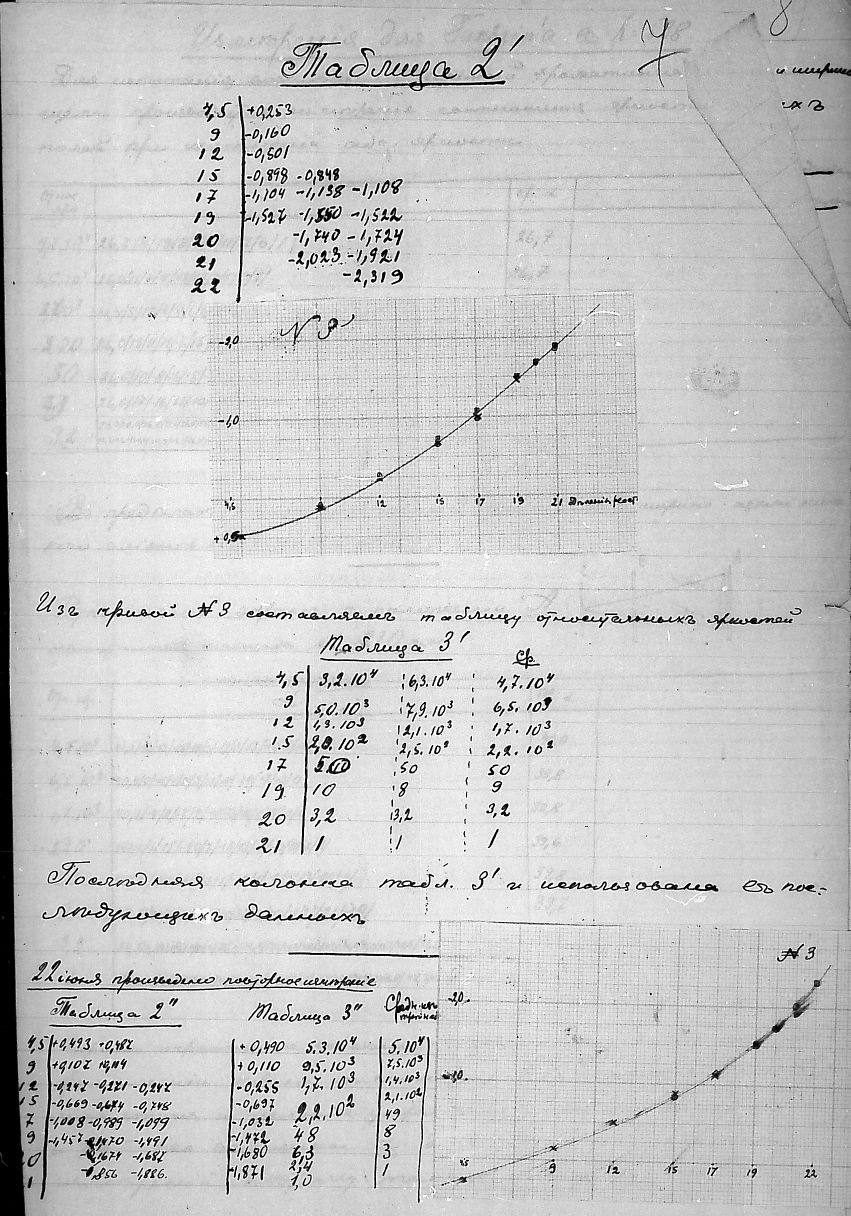 7
8
Таблица 2'
4,5 +0,253
9 -0,160
12 -0,501
15 -0,898 -0,848
17 -1,104 -1,138 -1,108
19 -1,527 -1,550 -1,522
20 -1,740 -1,724
21 -2,023 -1,921
22 -2,319
N 3
-2,0
-1,0
4,5 12 15 17 19 21
+0,5
Изъ кривой №3 составляемъ таблицу относительныхъ яркостей
Таблица 3'
Ср
4,5 3,2.10⁴ 6,3.10⁴ 4,7.10⁴
9 5,0.10³ 7,9.10³ 6,5.10³
12 1,3.10³ 2,1.10³ 1,7.10³
15 2,0.10² 2,5.10² 2,2.10²
17 50 50
19 10 8 9
20 3,2 3,2 3,2
21 1 1 1
Последняя колонка табл. 3' и использована въ пос-
ледующихъ данныхъ
22 июня произведено повторное
Таблица 2" Таблица 3"
4,5 +0,493 +0,487 +0,490 5.3.10⁴ 5.10⁴
9 +0,107 +0,114 +0,110 9,5.10³ 7,5.10³
12 -0,247 -0,271 -0,247 -0,255 1,7.10³ 1,4.10³
15 -0,669 -0,674 -0,748 -0,697 2,2.10² 2,1.10²
7 -1,008 -0,989 -1,099 -1,032 48 49
9 -1,457 -1,470 -1,491 -1,472 6,3 8
20 -1,674 -1,687 -1,680 2,4 3
1 -1,856 -1,886 -1,871 1,0 1
№3
-2,0
-1,0
4,5 9 12 15 17 19 22